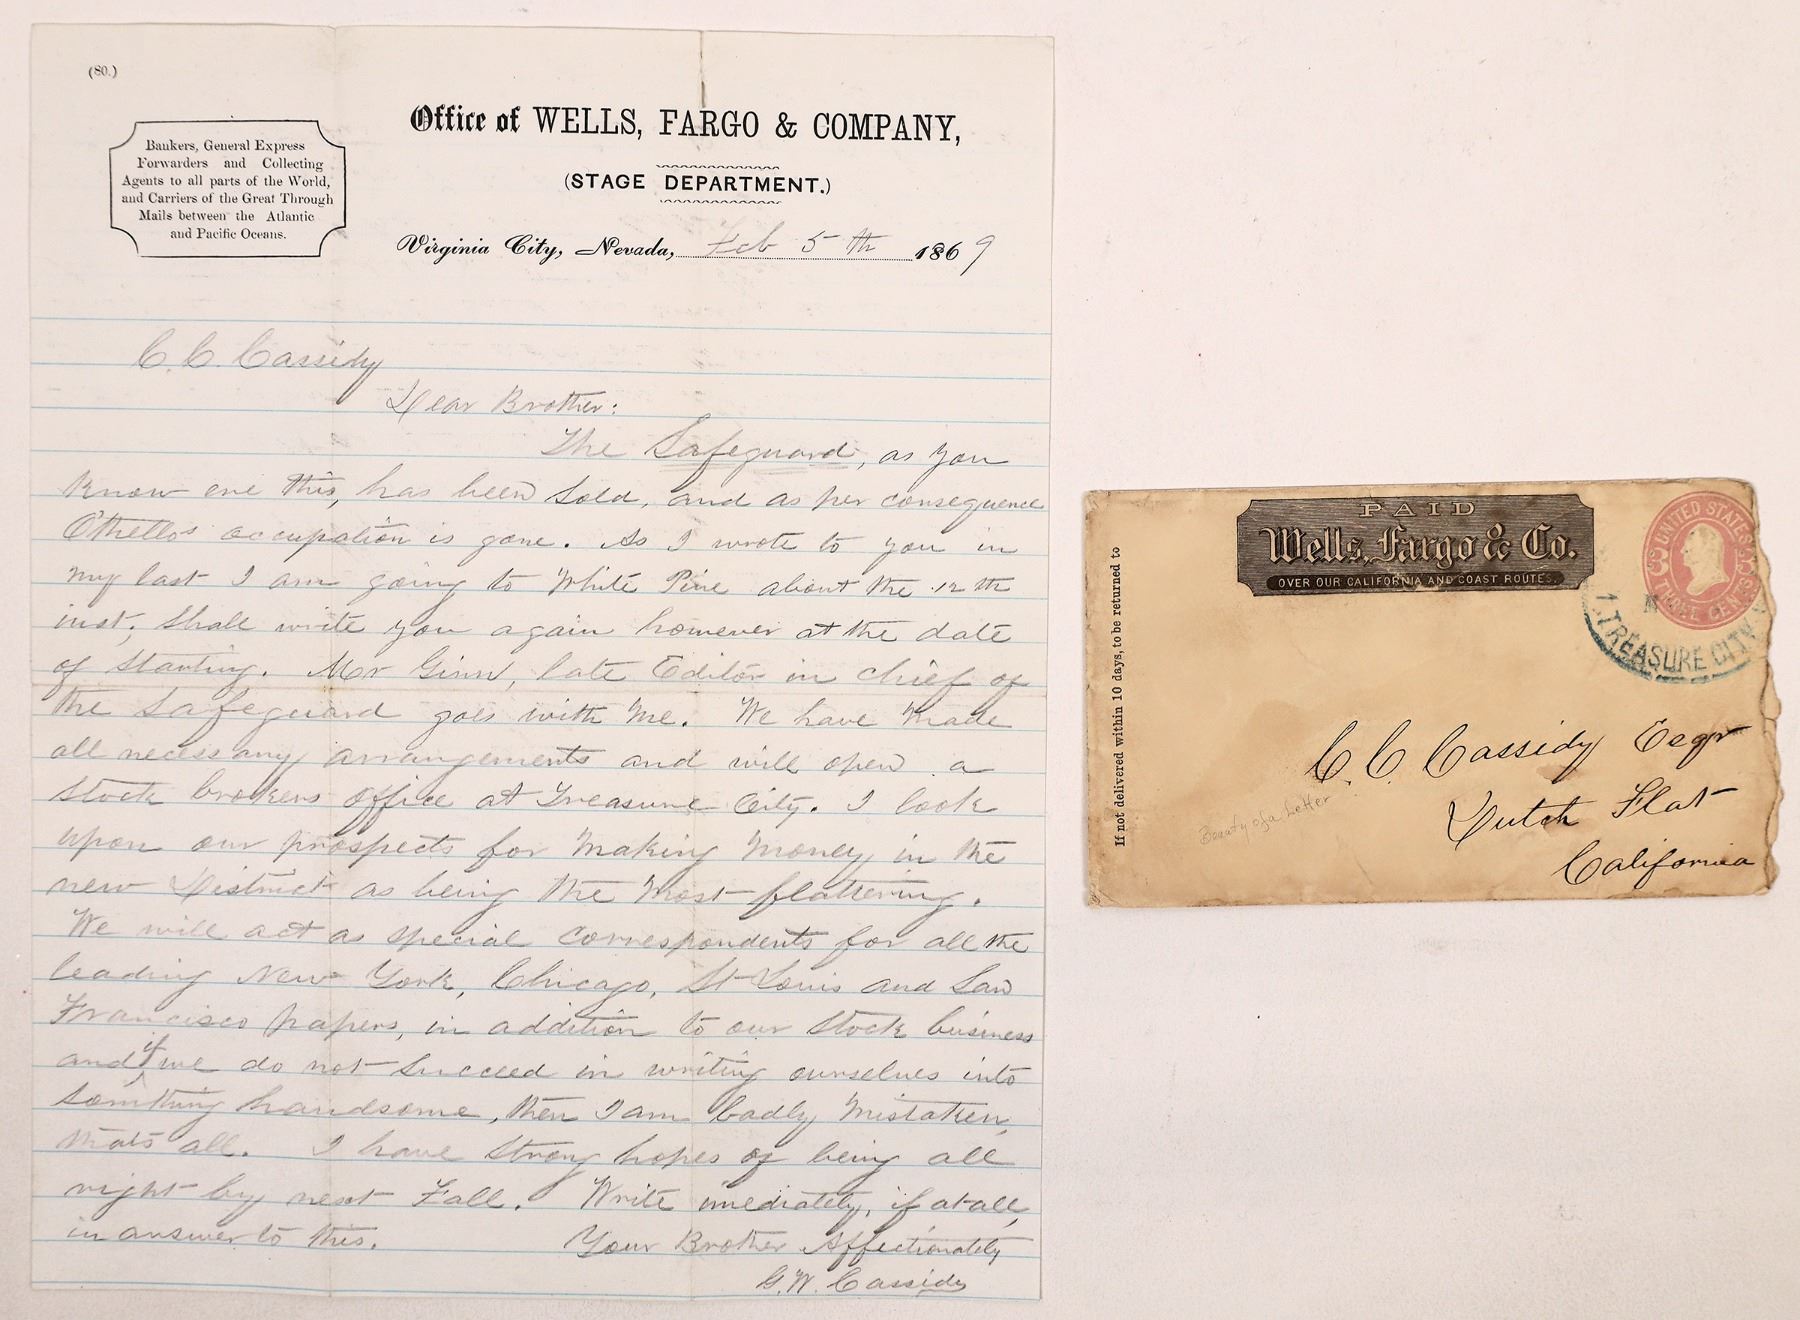 (80.)
Bankers, General Express
Forwarders and Collecting
Agents to all parts of the World,
and Carriers of the Great Through
Mails between the Atlantic
and Pacific Oceans.
Office of WELLS, FARGO & COMPANY,
(STAGE DEPARTMENT.)
Virginia City, Nevada, Feb 5th 1869
C. C. Cassidy
Dear Brother:
The Safeguard, as you
know ere this, has been sold, and as per consequence
Othello's occupation is gone. As I wrote to you in
my last I am going to White Pine about the 12th
inst; shall write you again however at the date
of starting. Mr Ginn, late Editor in chief of
the Safeguard goes with me. We have made
all necessary arrangements and will open a
stock brokers office at Treasure City. I look
upon our prospects for making money in the
new District as being the most flattering.
We will act as special correspondents for all the
leading New York, Chicago, St Louis and San
Francisco papers, in addition to our stock business
and if we do not succeed in writing ourselves into
something handsome, then I am badly mistaken,
thats all. I have strong hopes of being all
right by next Fall. Write imediately, if at all,
in answer to this.
Your Brother Affectionately
G. W. Cassidy
If not delivered within 10 days, to be returned to
PAID
Wells, Fargo & Co.
OVER OUR CALIFORNIA AND COAST ROUTES.
UNITED STATES
3 3
THREE CENTS
TREASURE CITY
C. C. Cassidy Esqr
Dutch Flat
California
Beauty of a Letter